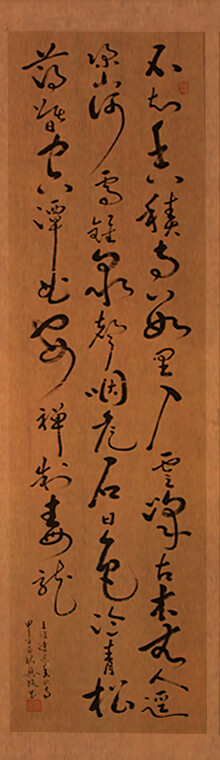 不知香積寺數里入雲峰古木無人逕
深山何處鐘泉聲咽危石日色冷青松
薄暮空潭曲安禪制毒龍
王維詩
甲子